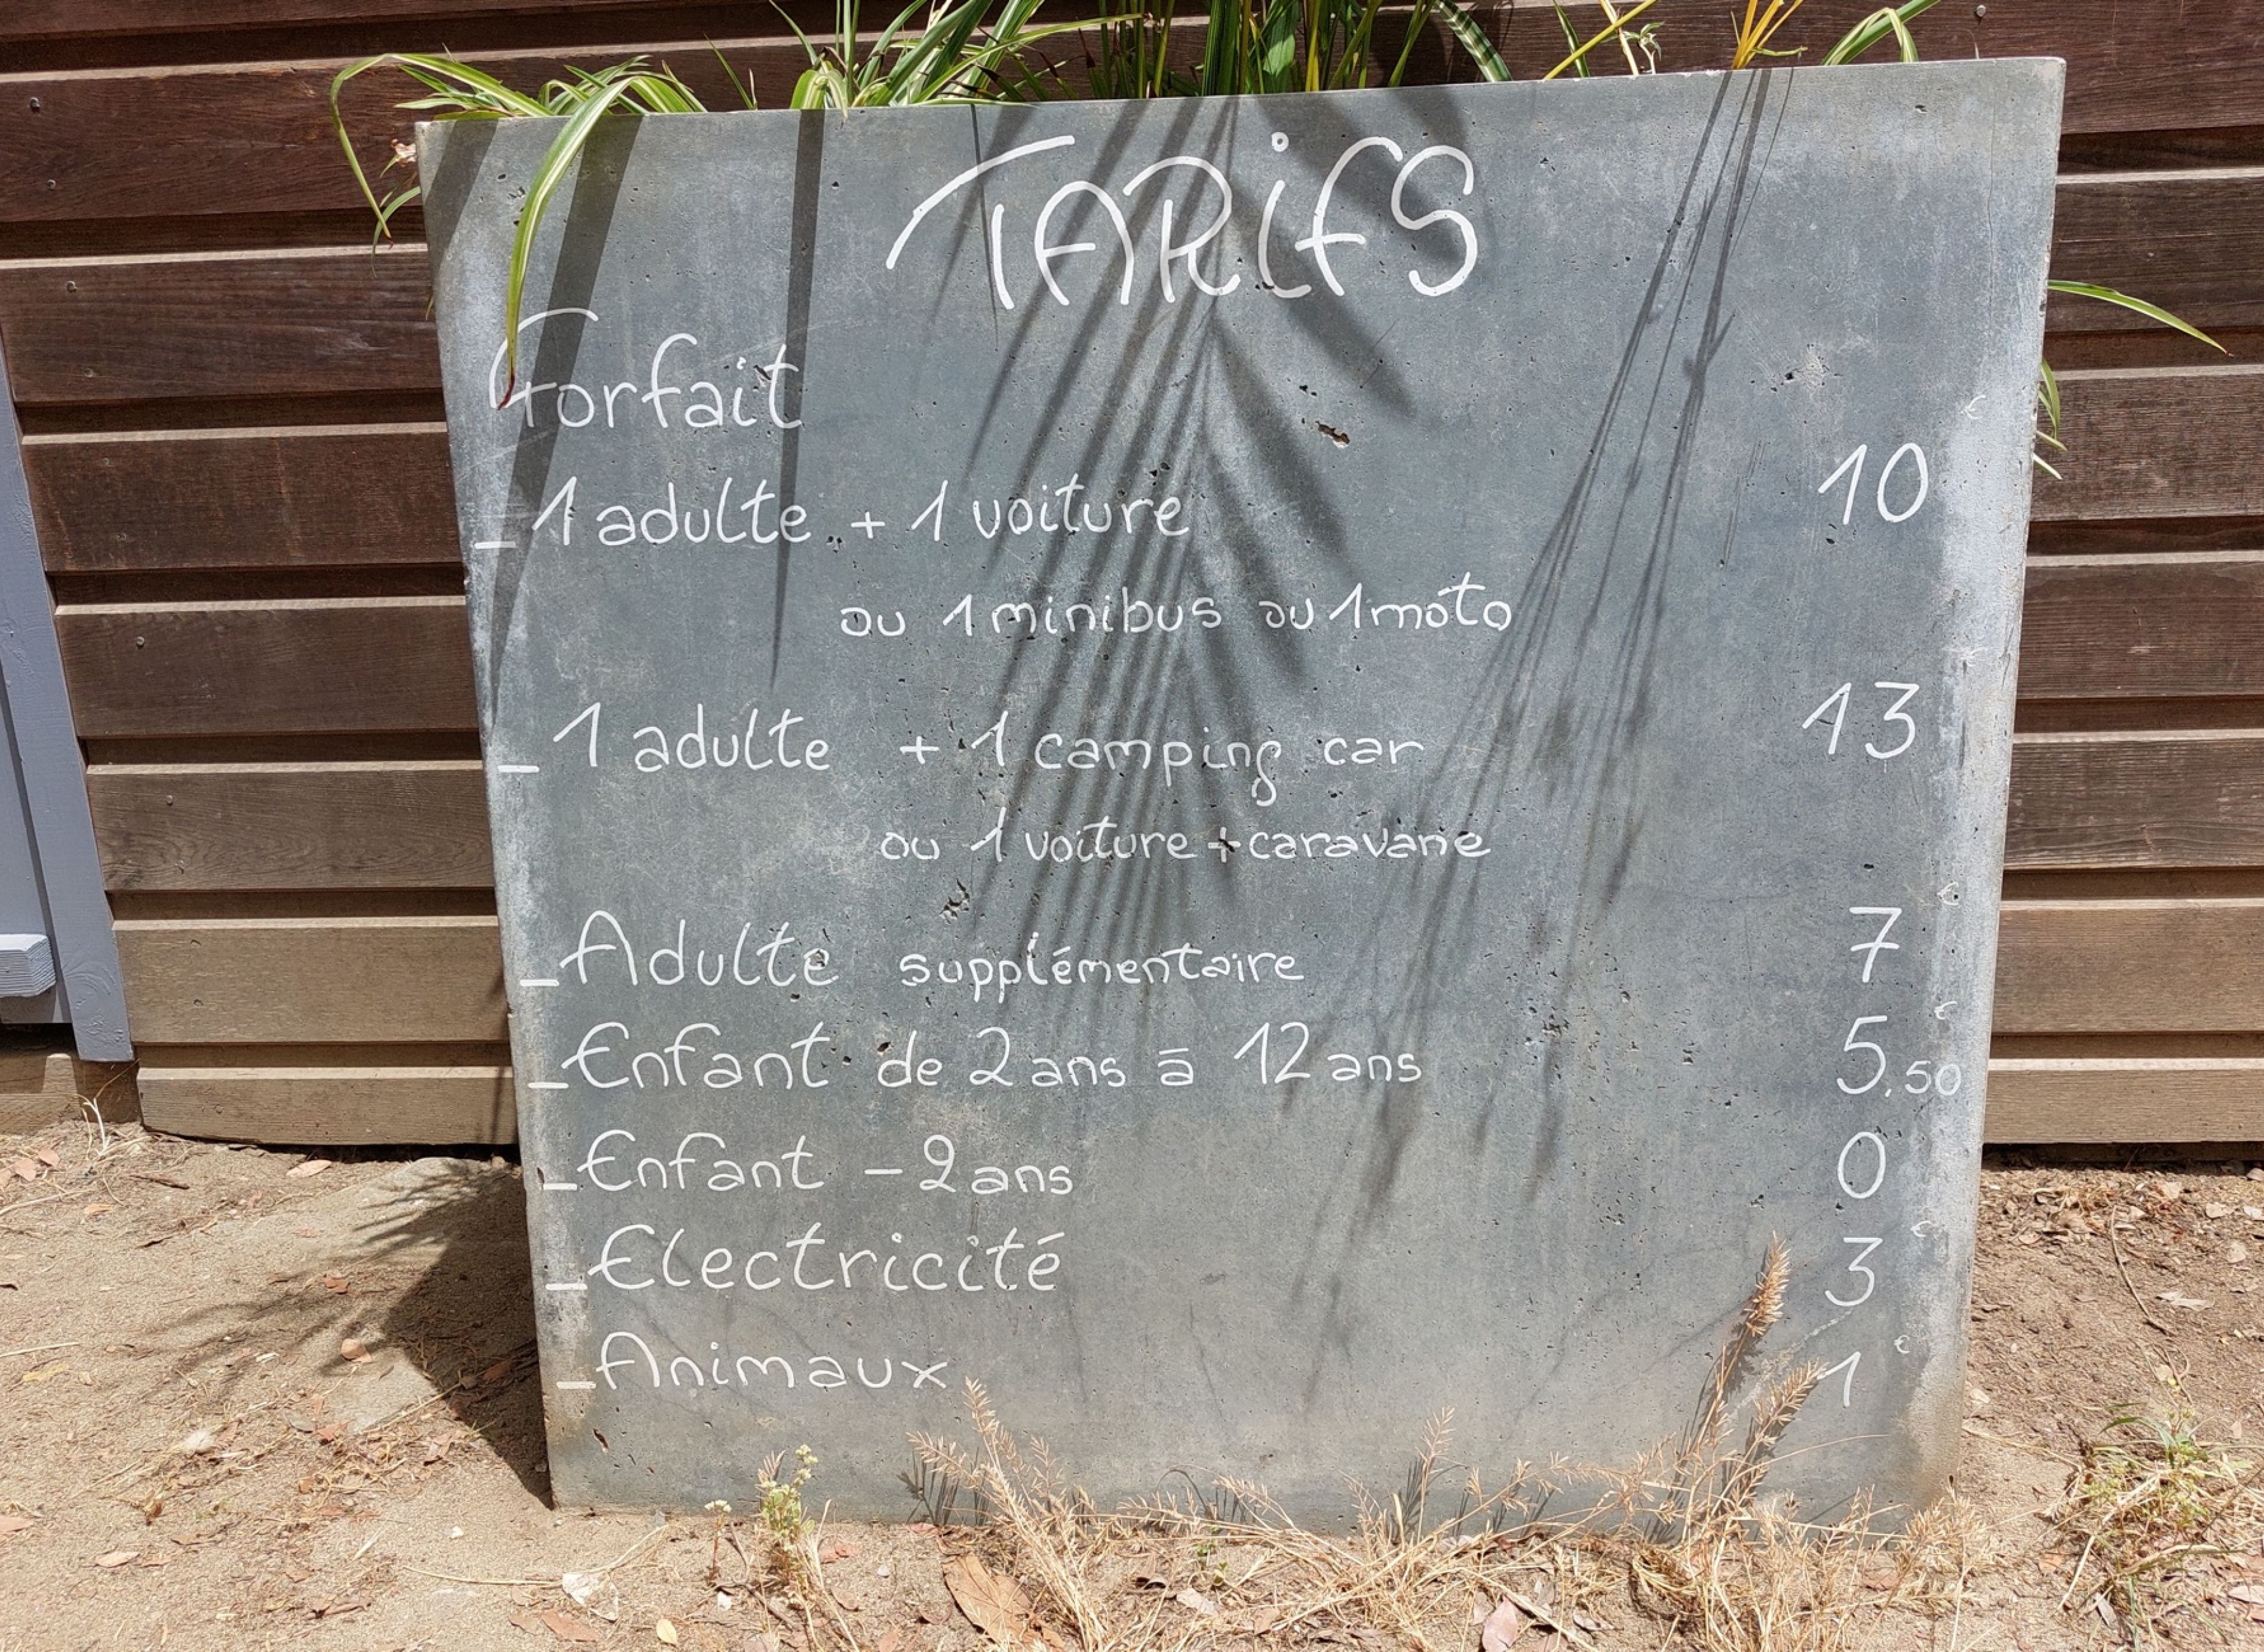 TARifS
Forfait
- 1 adulte + 1 voiture 10 €
ou 1 minibus ou 1 moto
- 1 adulte + 1 camping car 13
ou 1 voiture + caravane
- Adulte supplémentaire 7 €
- Enfant de 2 ans à 12 ans 5,50 €
- Enfant - 2 ans 0
- Electricité 3 €
- Animaux 1 €